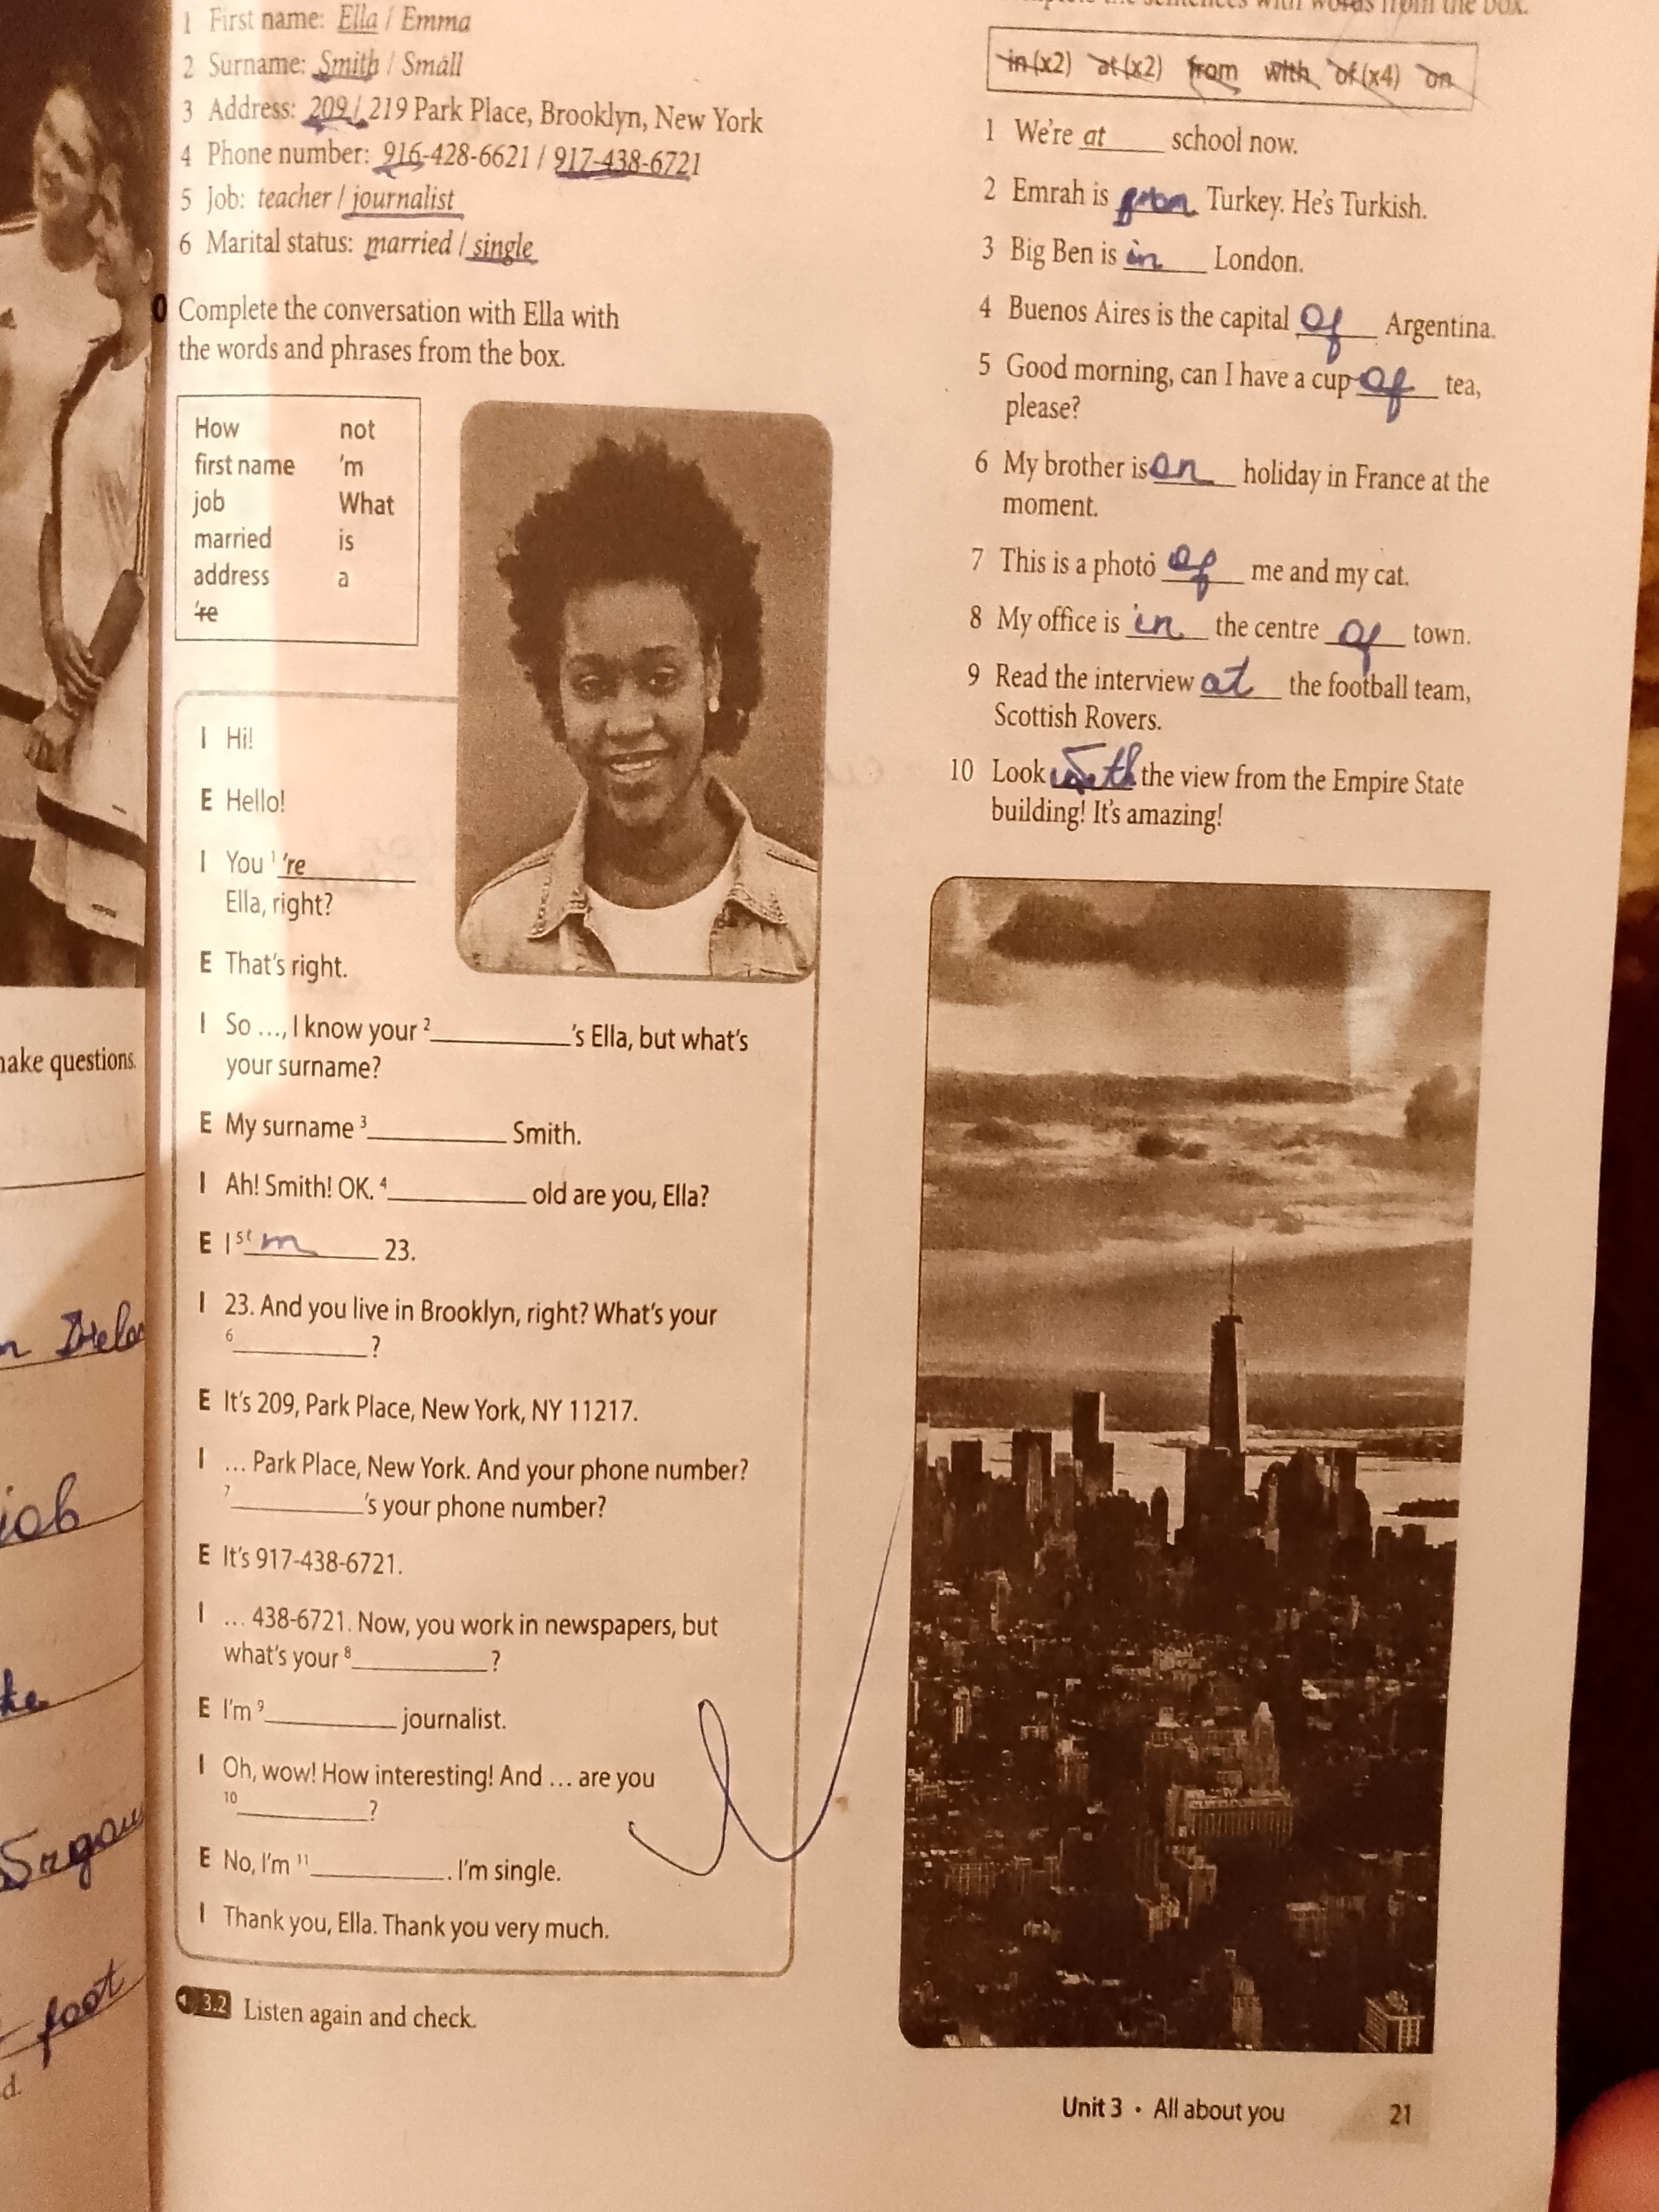 1 First name: Ella / Emma
2 Surname: Smith / Small
3 Address: 209 / 219 Park Place, Brooklyn, New York
4 Phone number: 916-428-6621 / 917-438-6721
5 Job: teacher / journalist
6 Marital status: married / single
0 Complete the conversation with Ella with
the words and phrases from the box.
How not
first name 'm
job What
married is
address a
're
I Hi!
E Hello!
I You 1 're
Ella, right?
E That's right.
I So ..., I know your 2 __________ 's Ella, but what's
your surname?
E My surname 3 __________ Smith.
I Ah! Smith! OK. 4 __________ old are you, Ella?
E I 5 'm 23.
I 23. And you live in Brooklyn, right? What's your
6 __________ ?
E It's 209, Park Place, New York, NY 11217.
I ... Park Place, New York. And your phone number?
7 __________ 's your phone number?
E It's 917-438-6721.
I ... 438-6721. Now, you work in newspapers, but
what's your 8 __________ ?
E I'm 9 __________ journalist.
I Oh, wow! How interesting! And ... are you
10 __________ ?
E No, I'm 11 __________ . I'm single.
I Thank you, Ella. Thank you very much.
3.2 Listen again and check.
the sentences with words from the box.
in (x2) at (x2) from with of (x4) on
1 We're at school now.
2 Emrah is from Turkey. He's Turkish.
3 Big Ben is in London.
4 Buenos Aires is the capital of Argentina.
5 Good morning, can I have a cup of tea,
please?
6 My brother is on holiday in France at the
moment.
7 This is a photo of me and my cat.
8 My office is in the centre of town.
9 Read the interview at the football team,
Scottish Rovers.
10 Look with the view from the Empire State
building! It's amazing!
Unit 3 • All about you 21
questions.
job
foot